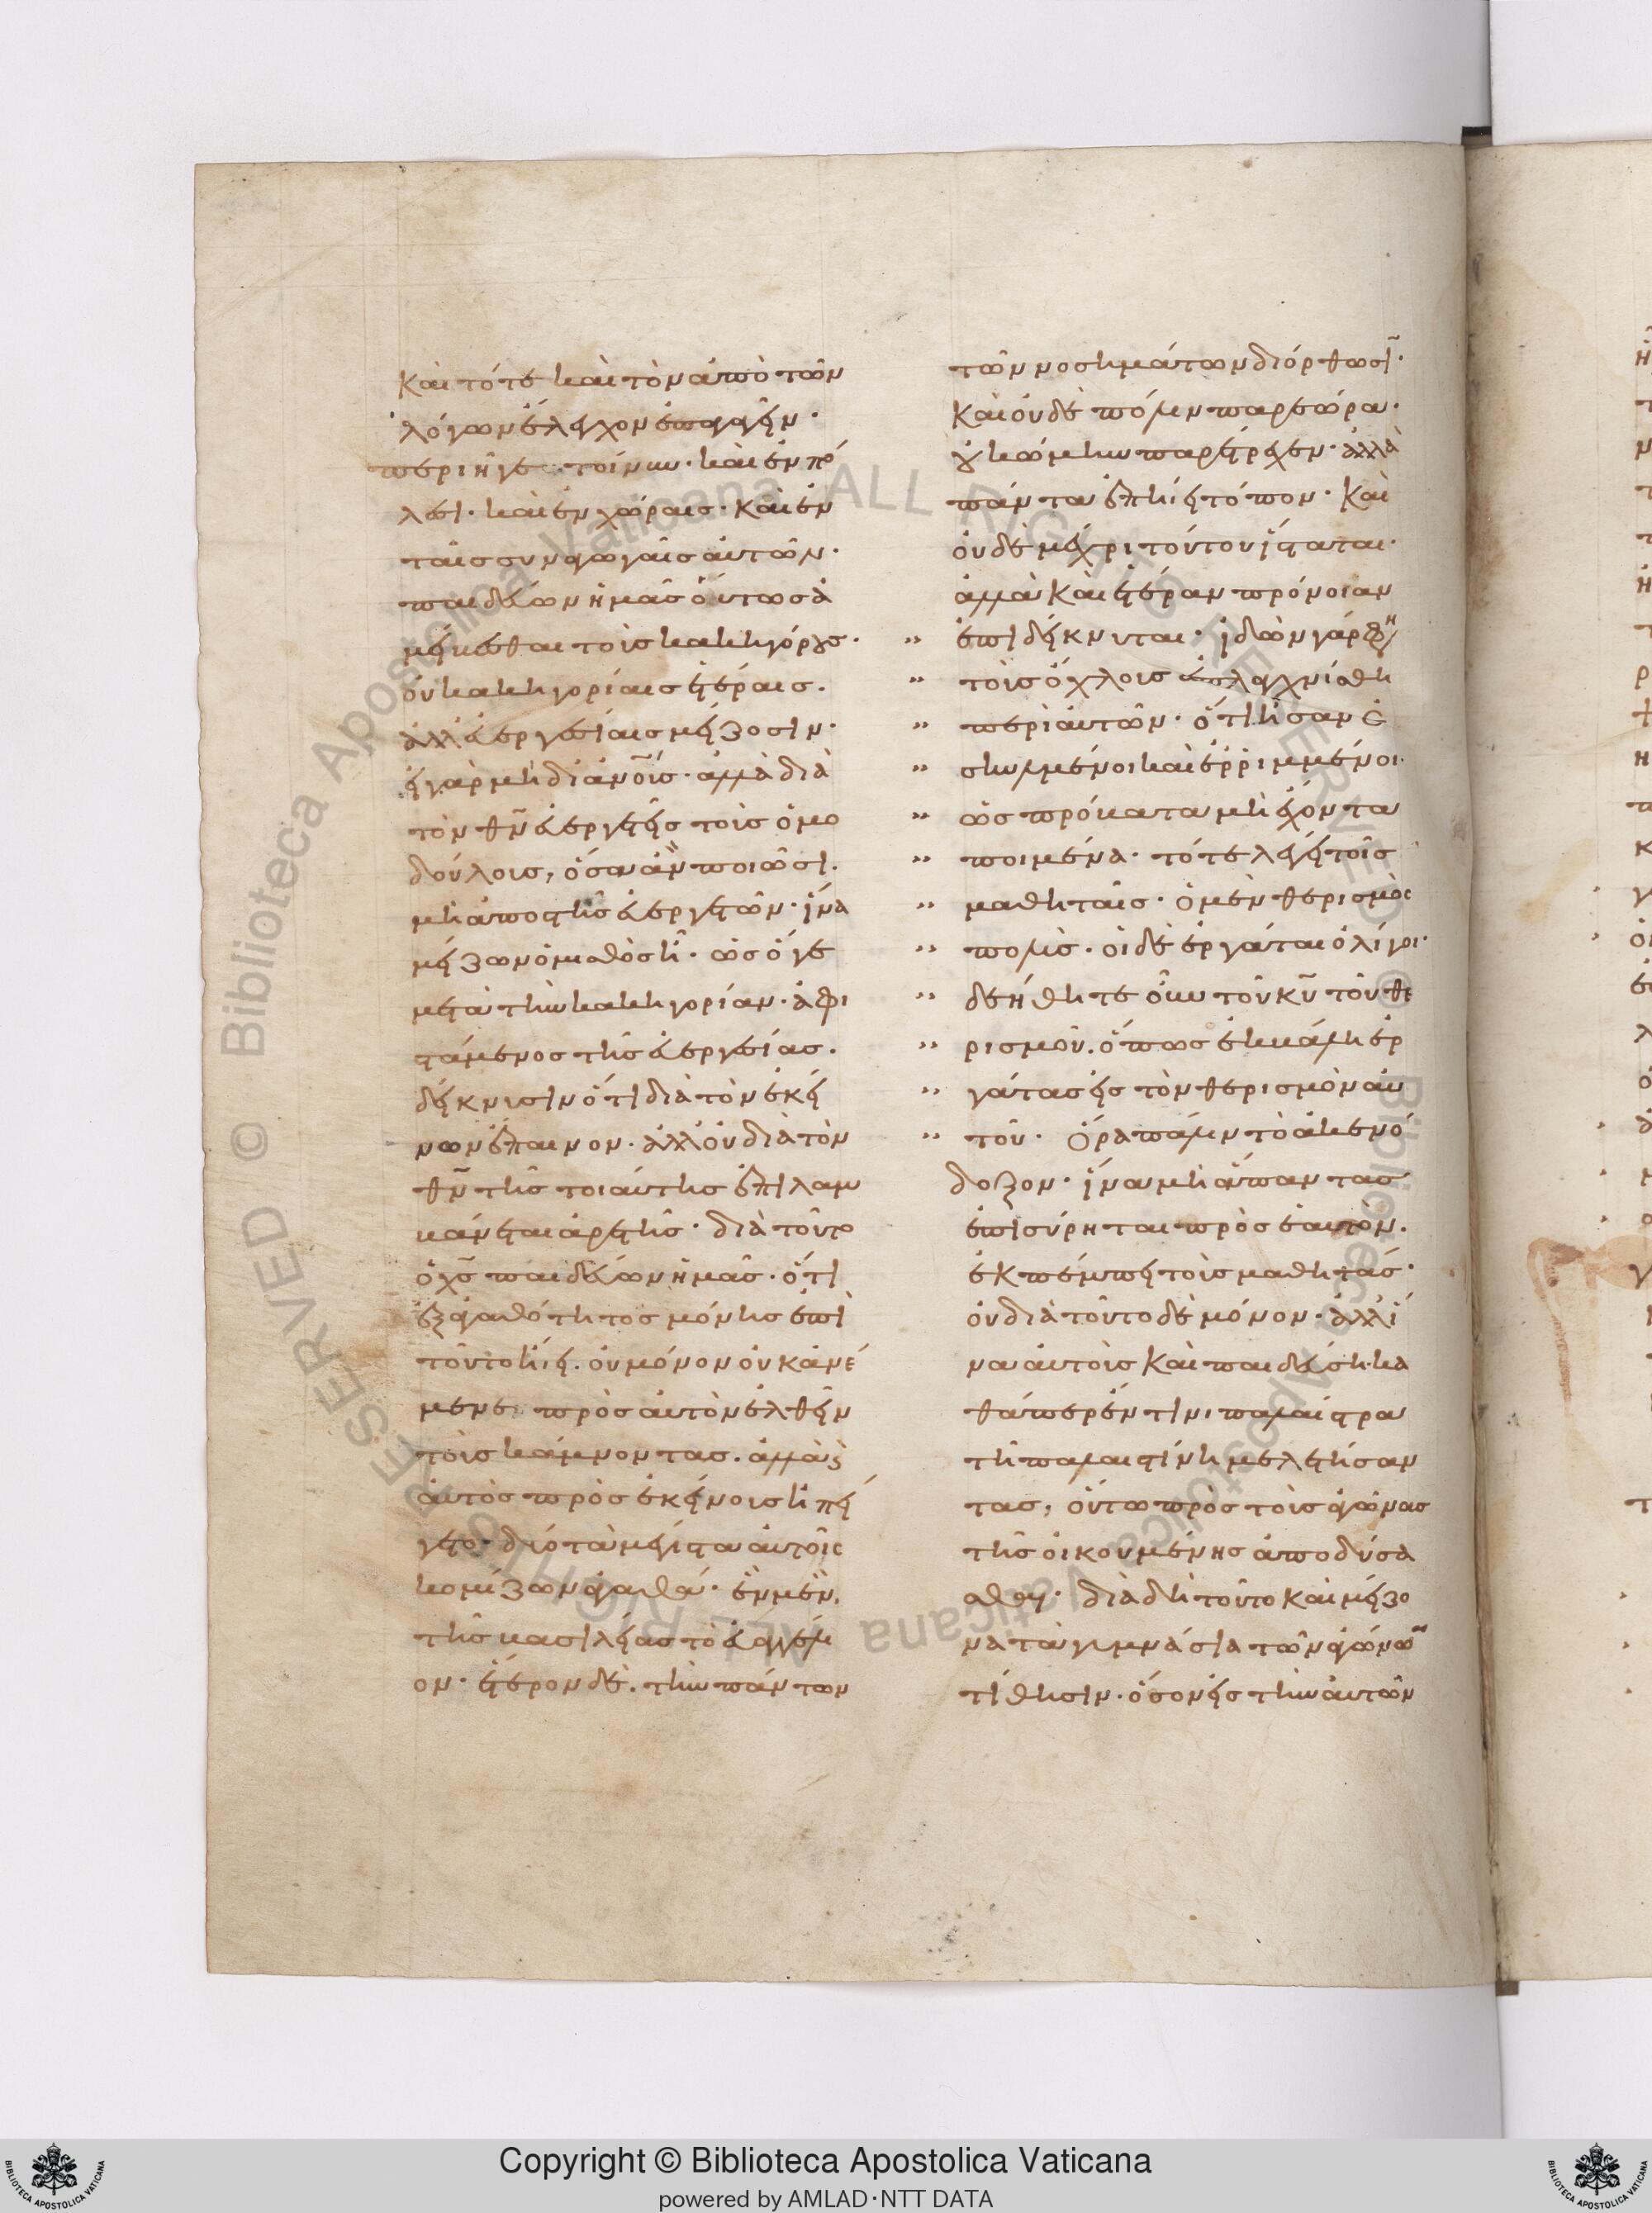 καὶ τότε καὶ τὸν ἀπὸ τῶν
λόγων ἔλεγχον ἐπαγαγεῖν·
περιῆγε τοίνυν· καὶ ἐν πό
λεσι· καὶ ἐν χώραις· καὶ ἐν
ταῖς συναγωγαῖς αὐτῶν·
παιδεύων ἡμᾶς οὕτως ἀ
μείβεσθαι τοὺς κακηγόρους·
οὐ κακηγορίαις ἑτέραις.
ἀλλ' εὐεργεσίαις μείζοσιν·
εἰ γὰρ μὴ δι' ἀνοῖς· ἀλλὰ διὰ
τὸν θν εὐεργετεῖς τοὺς ὁμο
δούλους, ὅσα ἂν ποιῶσι.
μὴ ἀποστῆς εὐεργετῶν· ἵνα
μείζων ὁ μισθὸς ἦ· ὡς ὅ γε
μετὰ τὴν κακηγορίαν· ἀφι
στάμενος τῆς εὐεργεσίας.
δείκνυσιν ὅτι διὰ τὸν ἐκεί
νων ἔπαινον· ἀλλ' οὐ διὰ τὸν
θν τῆς τοιαύτης ἐπιλαμ
βάνεται ἀρετῆς· διὰ τοῦτο
ὁ χς παιδεύων ἡμᾶς· ὅτι
ἐξ ἀγαθότητος μόνης ἐπὶ
τοῦτο ἤει. οὐ μόνον οὐκ ἀνέ
μενε πρὸς αὐτὸν ἐλθεῖν
τοὺς κάμνοντας. ἀλλὰ καὶ
αὐτὸς πρὸς ἐκείνους ἠπεί
γετο· δύο τὰ μέγιστα αὐτοῖς
κομίζων ἀγαθά· ἓν μὲν,
τῆς βασιλείας τὸ εὐαγγέλι
ον· ἕτερον δὲ. τὴν πάντων
τῶν νοσημάτων διόρθωσι·
καὶ οὐδὲ πόλιν παρεώρα·
οὐ κώμην παρέτρεχεν· ἀλλὰ
πάντα ἐπῄει τόπον· καὶ
οὐδὲ μέχρι τούτου ἵσταται·
ἀλλὰ καὶ ἑτέραν πρόνοιαν
" ἐπιδείκνυται· ἰδὼν γάρ φη
" τοὺς ὄχλους ἐσπλαγχνίσθη
" περὶ αὐτῶν· ὅτι ἦσαν ἐ
" σκυλμένοι καὶ ἐρριμμένοι·
" ὡς πρόβατα μὴ ἔχοντα
" ποιμένα· τότε λέγει τοῖς
" μαθηταῖς· ὁ μὲν θερισμὸς
" πολὺς· οἱ δὲ ἐργάται ὀλίγοι·
" δεήθητε οὖν τοῦ κυ τοῦ θε
" ρισμοῦ. ὅπως ἐκβάλη ἐρ
" γάτας εἰς τὸν θερισμὸν αὐ
" τοῦ· Ὅρα πάλιν τὸ ἀκενό
δοξον· ἵνα μὴ ἅπαντας
ἐπισύρηται πρὸς ἑαυτὸν.
ἐκπέμπει τοὺς μαθητάς·
οὐ διὰ τοῦτο δὲ μόνον· ἀλλ' ἵ
να αὐτοὺς καὶ παιδεύση· κα
θάπερ ἔν τινι παλαίστρα
τῆ παλαιστίνη μελετήσαν
τας, οὕτω πρὸς τοὺς ἀγῶνας
τῆς οἰκουμένης ἀποδύσα
σθαι· διὰ δὴ τοῦτο καὶ μείζο
να τὰ γυμνάσια τῶν ἀγώνων
τίθησιν· ὅσον εἰς τὴν αὐτῶν
Copyright © Biblioteca Apostolica Vaticana
powered by AMLAD·NTT DATA